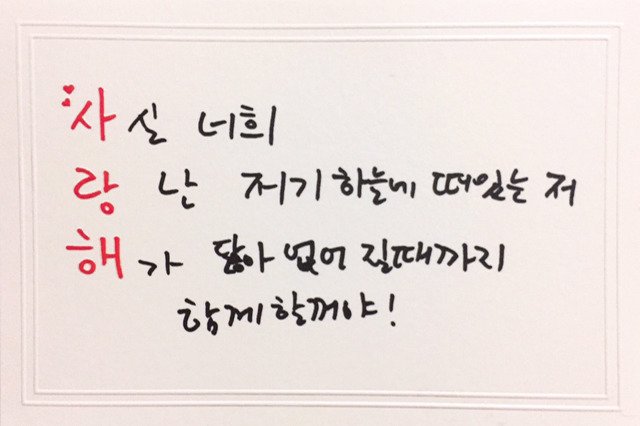 사실 너희
랑 난 저기 하늘에 떠있는 저
해가 닳아 없어 질때까지
함께할꺼야!